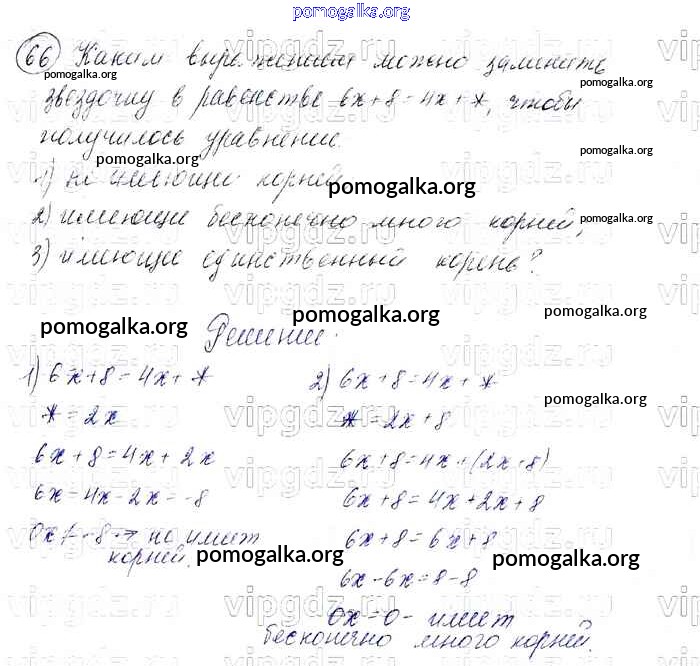 pomogalka.org
66 Каким выражением можно заменить
pomogalka.org
pomogalka.org
звездочку в равенстве 6x+8=4x+*, чтобы
pomogalka.org
получилось уравнение.
pomogalka.org
1) не имеющие корней
pomogalka.org
2) имеющие бесконечно много корней,
pomogalka.org
3) имеющие единственный корень?
pomogalka.org
pomogalka.org
pomogalka.org
Решение.
1) 6x+8=4x+*
* = 2x
6x+8=4x+2x
6x-4x-2x=-8
0x≠-8 → не имеет
корней.
2) 6x+8=4x+*
pomogalka.org
* = 2x+8
6x+8=4x+(2x+8)
6x+8=4x+2x+8
6x+8=6x+8
6x-6x=8-8
0x=0- имеет
бесконечно много корней.
pomogalka.org
pomogalka.org
vipgdz.ru